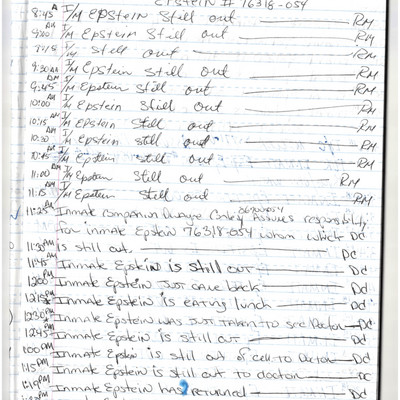 Epstein # 76318-054
8:45 A I/M Epstein Still out RM
9:00 AM I/M Epstein Still out RM
9:15 I/M Still out RM
9:30 AM I/M Epstein Still out RM
9:45 AM I/M Epstein Still out RM
10:00 AM I/M Epstein Still out RM
10:15 AM I/M Epstein Still out RM
10:30 AM I/M Epstein Still out RM
10:45 AM I/M Epstein Still out RM
11:00 AM I/M Epstein Still out RM
11:15 AM I/M Epstein Still out RM
11:25 Inmate Companion Assumes responsibility
for inmate Epstein 76318-054 whom which DC
11:30 AM is still out DC
11:45 AM Inmate Epstein is still out DC
12:00 PM Inmate Epstein Just came back DC
12:15 PM Inmate Epstein is eating lunch DC
12:30 PM Inmate Epstein was Just taken to see Doctor DC
12:45 PM Inmate Epstein is still out DC
1:00 PM Inmate Epstein is still out of cell to Doctor DC
1:15 PM Inmate Epstein is still out to doctor DC
Inmate Epstein has returned DC